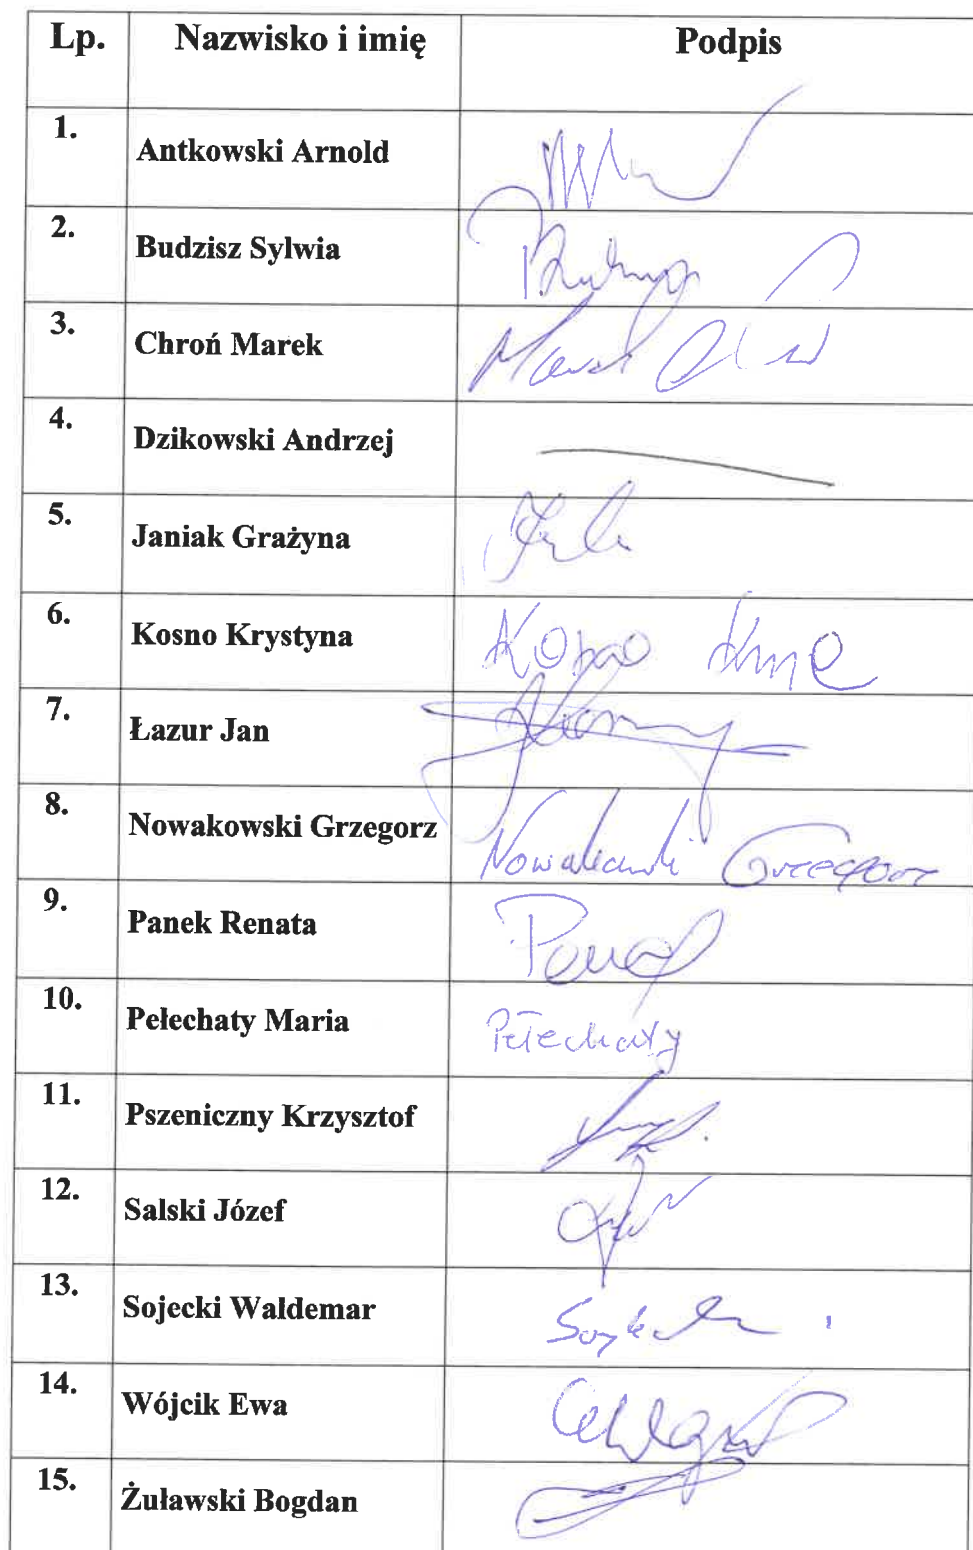 Lp. Nazwisko i imię Podpis
1. Antkowski Arnold
2. Budzisz Sylwia
3. Chroń Marek Marek
4. Dzikowski Andrzej
5. Janiak Grażyna
6. Kosno Krystyna Kosno
7. Łazur Jan
8. Nowakowski Grzegorz Nowakowski Grzegorz
9. Panek Renata Panek
10. Pełechaty Maria Pełechaty
11. Pszeniczny Krzysztof
12. Salski Józef
13. Sojecki Waldemar
14. Wójcik Ewa
15. Żuławski Bogdan